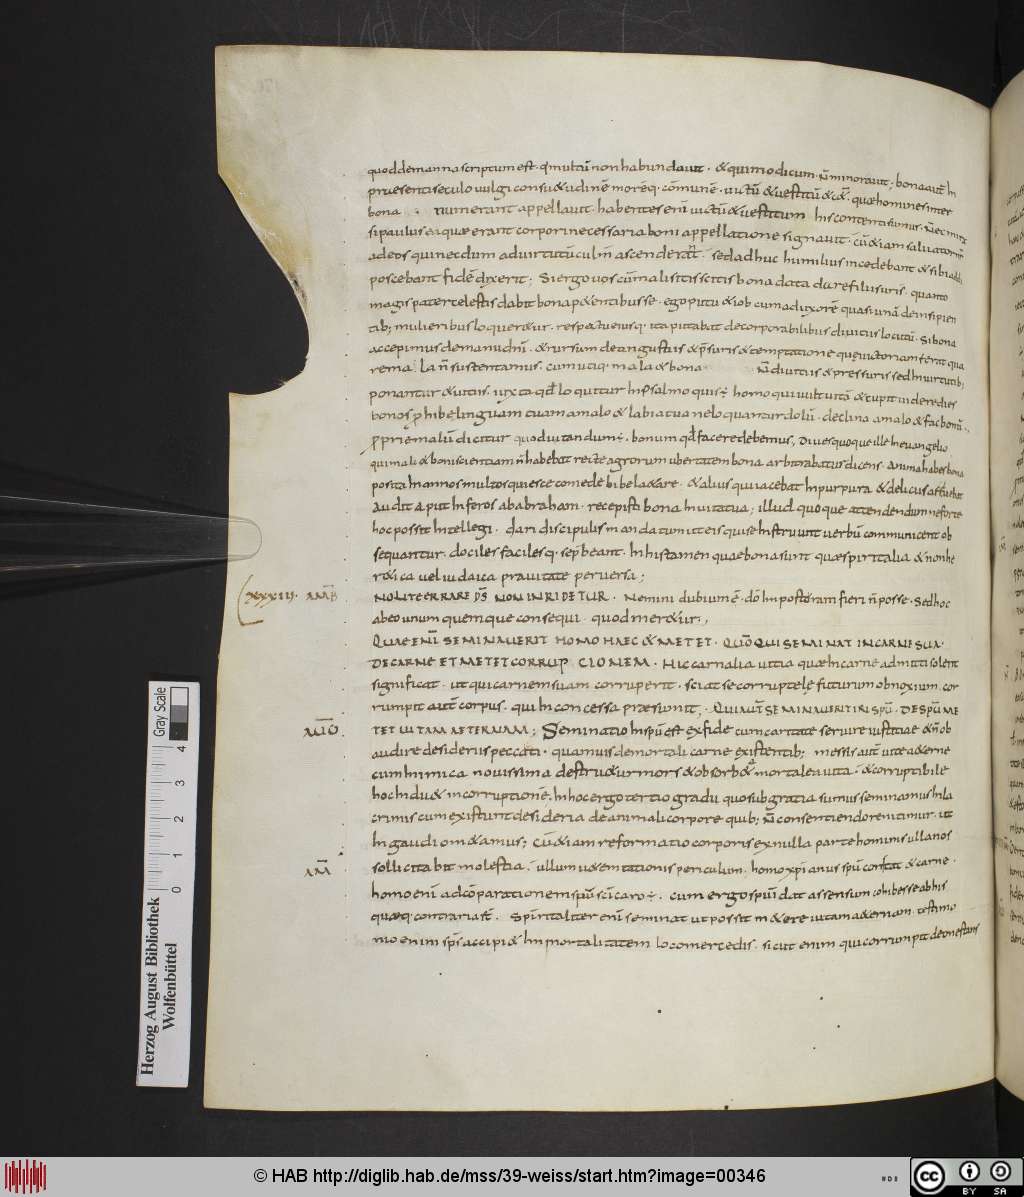 quod de manna scriptum est · qi multū non habundauit · & qui modicum · ñ minorauit ; bona autē In
praesenti seculo uulgi consu&udinē moreq· cōmunē · uictū & uestitū & c&ā · quae homines inter
bona · numerant appellauit · habentes enī uictū & uestitum his contenti sumus ·
si paulus ea quae erant corpori necessaria boni appellatione signauit · cū &iam saluator
adeos qui necdum ad uirtutū culm̄ ascenderāt · sed adhuc humilius incedebant & sibi addi
poscebant fidē dixerit ; Si ergo uos cū mali sitis scitis bona data dare filiis uris · quanto
magis pater celestis dabit bona p&entibus se · ego puto & iob cum ad uxorē quasi unā de insipien
tib; mulieribus loquer&ur · respectu eiusq· ita putabat de corporabilibus diuitiis locutū · Si bona
accepimus de manu dn̄i · & rursum de angustiis & p̄suris & temptatione que uictoriam ferat qua
re mala n̄ sustentamus · cum utiq· mala & bona · ñ diuitiis & pressuris sed In uirtutib;
ponantur & uitiis · iuxta qđ loquitur In psalmo quis ÷ homo qui uult uitā & cupit uidere dies
bonos phibe linguam tuam a malo & labia tua ne loquantur dolū · declina a malo & fac bonū ·
p prie malū dicitur quod uitandum ÷ · bonum qđ facere debemus , Diues quoque ille In euangelio
qui mali & boni scientiam n̄ habebat recte agrorum ubertatem bona arbitrabatur dicens · Anima habes bona
posita In annos multos quiesce comede bibe laetare · & alius qui iacebat In purpura & deliciis affluebat
audit aput Inferos ab abraham · recepisti bona In uita tua ; illud quoque attendendum ne forte
hoc possit Intellegi · quasi discipulis mandatum ut eis qui se Instruunt uerbū communicent ob
sequantur · dociles faciles q· sep̄beant · In his tamen quae bona sunt quae spiritalia & non he
r&ica uel iudaica prauitate peruersa ;
XXXIII · AMB NOLITE ERRARE D̄S NON INRIDETUR · Nemini dubium ē · dō Imposturam fieri n̄ posse · Sed hoc
ab eo unumquemque consequi · quod mer&ur ;
QUAE ENĪ SEMINAUERIT HOMO HAEC & METET · QUŌ QUI SEMINAT IN CARNE SUA ·
DE CARNE ET METET CORRUPCIONEM · Hic carnalia uitia quae In carne admitti solent
significat · ut qui carnem suam corruperit · sciat se corruptelę futurum obnoxium · cor
rumpit autē corpus · qui In concessa praesumit ; QUI AUT̄ SEMINAUERIT IN SPŪ · DE SPŪ ME
AUG TET UITAM AETERNAM ; Seminatio In spū est ex fide cum caritate seruire iustitiae & n̄ ob
audire desideriis peccati · quamuis de mortali carne existentib; messis aut uitae aeterne
cum Inimica nouissima destru&ur mors & obsorb&ᵃ mortale a uita · & corruptibile
hoc Indu& incorruptionē · In hoc ergo tertio gradu quo sub gratia sumus seminamus In la
crimis cum existunt desideria de animali corpore quib; n̄ consentiendo renitimur · ut
In gaudio m&amus ; cū &iam reformatio corporis ex nulla parte hominis ullanos
IM̄ sollicitabit molestia · ullum ue temptationis periculum · homo xp̄ianus sp̄u constat & carne ·
homo enī ad cōparationem sp̄us sc̄i caro ÷ · cum ergo sp̄ui dat assensum cohibesse ab his
quae q· contraria st̄ · Spiritaliter enī seminat ut possit m&ere uitam aeternam · testimo
nio enim sp̄s accipi& Inmortalitatem loco mercedis · sicut enim qui corrumpit de onestans
Herzog August Bibliothek
Wolfenbüttel
0 1 2 3 4
Gray Scale
© HAB http://diglib.hab.de/mss/39-weiss/start.htm?image=00346
cc BY SA